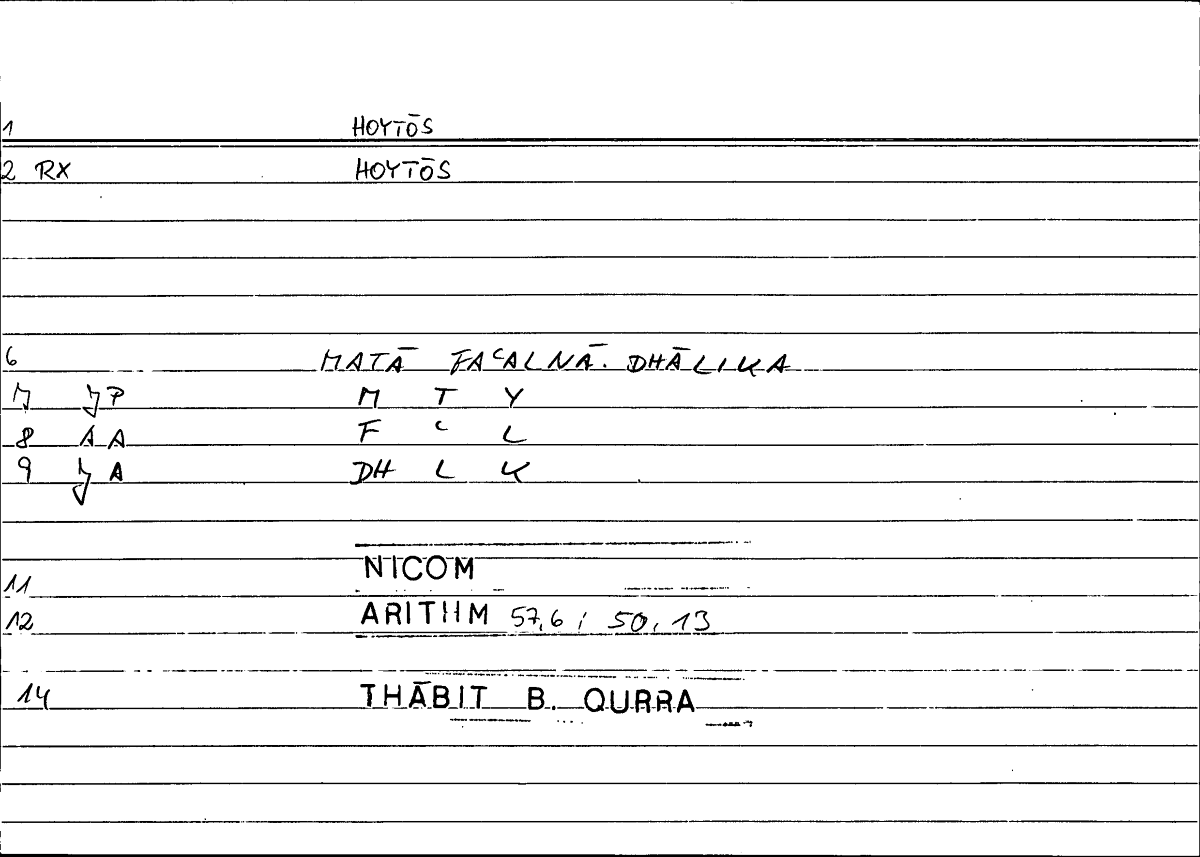 1 HOYTŌS
2 RX HOYTŌS
6 MATĀ FAʿALNĀ. DHĀLIKA
M T Y
8 A A F ʿ L
9 A DH L K
11 NICOM
12 ARITHM 57,6 ; 50,13
14 THĀBIT B. QURRA